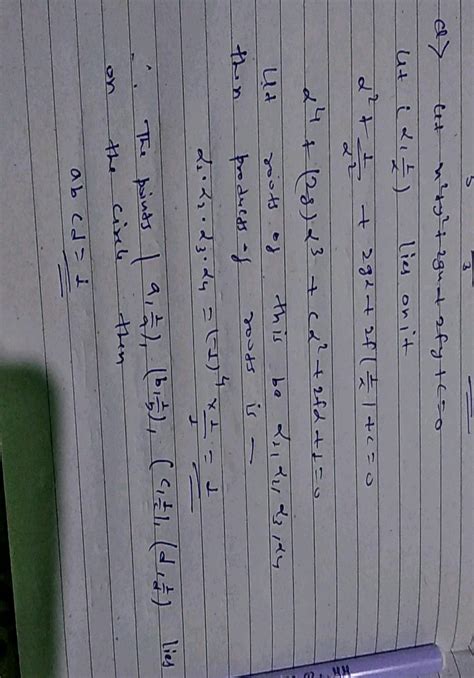 d> Let x²+y²+2gx+2fy+c=0
Let (α, 1/α) lies on it
α² + 1/α² + 2gα + 2f(1/α) + c = 0
α⁴ + (2g)α³ + cα² + 2fα + 1 = 0
Let roots of this be α₁, α₂, α₃, α₄
then products of roots is —
α₁·α₂·α₃·α₄ = (-1)⁴ × 1/1 = 1
∴ The points (a, 1/a), (b, 1/b), (c, 1/c), (d, 1/d) lies
on the circle then
ab cd = 1